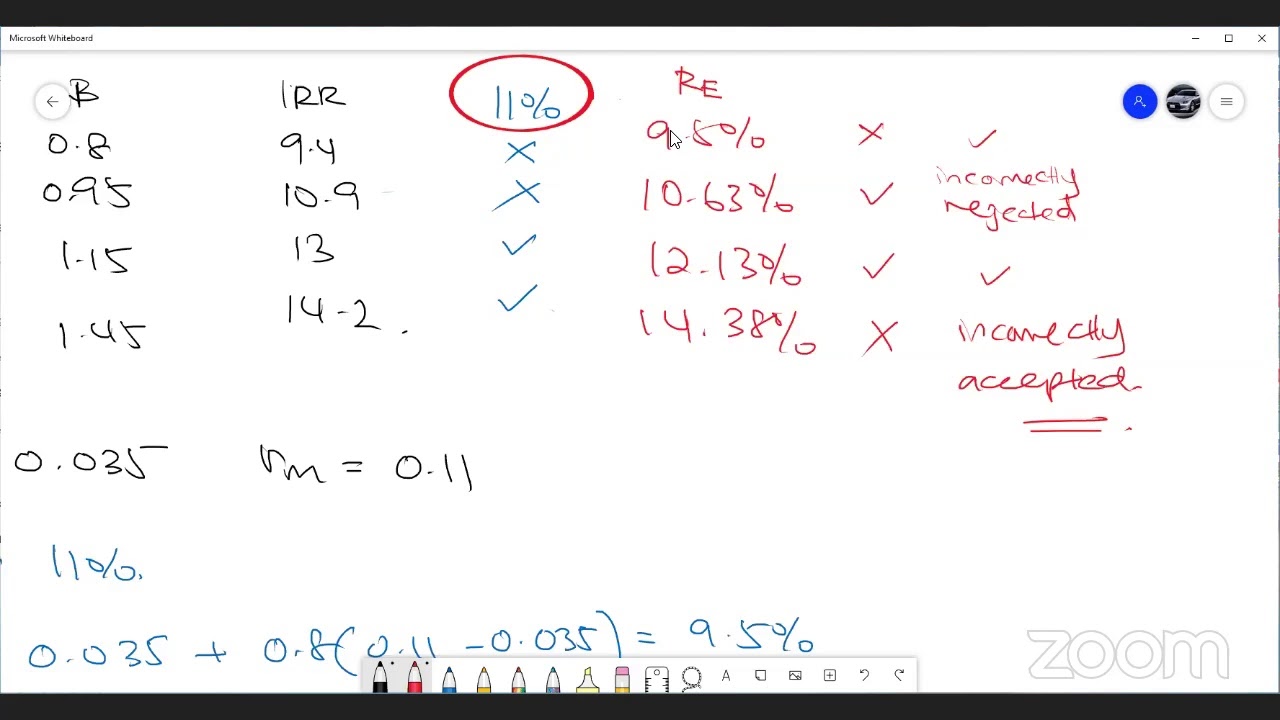 Microsoft Whiteboard
B IRR 11% RE
0.8 9.4 × 9.5% × ✓
0.95 10.9 × 10.63% ✓ incorrectly
rejected
1.15 13 ✓ 12.13% ✓ ✓
1.45 14.2 ✓ 14.38% × incorrectly
accepted.
0.035 rm = 0.11
11%.
0.035 + 0.8(0.11 - 0.035) = 9.5%
zoom